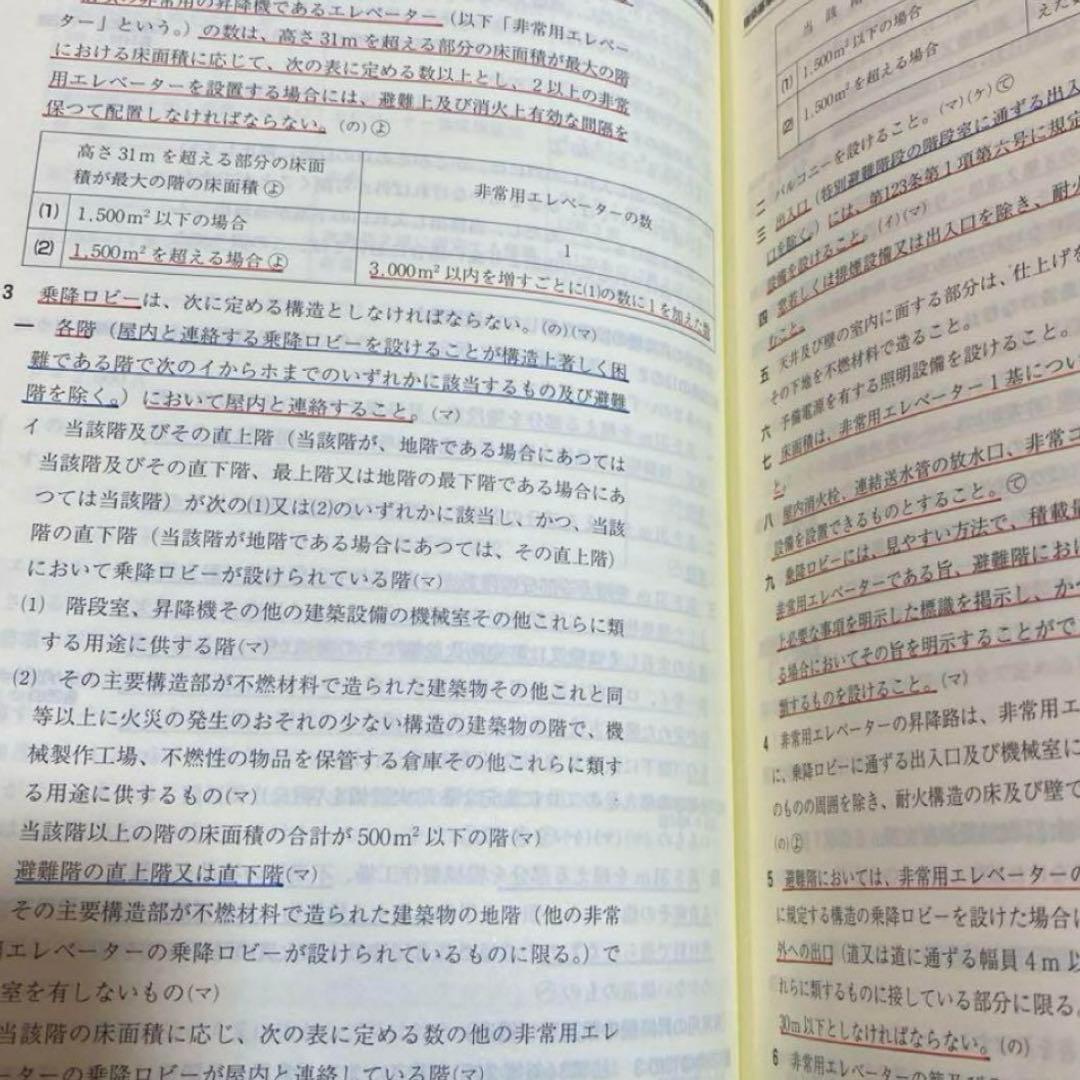 の非常用の昇降機であるエレベーター（以下「非常用エレベー
ター」という。）の数は、高さ31mを超える部分の床面積が最大の階
における床面積に応じて、次の表に定める数以上とし、2以上の非常
用エレベーターを設置する場合には、避難上及び消火上有効な間隔を
保つて配置しなければならない。(の)㋵
高さ31mを超える部分の床面
積が最大の階の床面積㋵
非常用エレベーターの数
(1) 1,500m²以下の場合
1
(2) 1,500m²を超える場合㋵
3,000m²以内を増すごとに(1)の数に1を加えた数
3 乗降ロビーは、次に定める構造としなければならない。(の)(マ)
一 各階（屋内と連絡する乗降ロビーを設けることが構造上著しく困
難である階で次のイからホまでのいずれかに該当するもの及び避難
階を除く。）において屋内と連絡すること。(マ)
イ 当該階及びその直上階（当該階が、地階である場合にあつては
当該階及びその直下階、最上階又は地階の最下階である場合にあ
つては当該階）が次の(1)又は(2)のいずれかに該当し、かつ、当該
階の直下階（当該階が地階である場合にあつては、その直上階）
において乗降ロビーが設けられている階(マ)
(1) 階段室、昇降機その他の建築設備の機械室その他これらに類
する用途に供する階(マ)
(2) その主要構造部が不燃材料で造られた建築物その他これと同
等以上に火災の発生のおそれの少ない構造の建築物の階で、機
械製作工場、不燃性の物品を保管する倉庫その他これらに類す
る用途に供するもの(マ)
当該階以上の階の床面積の合計が500m²以下の階(マ)
避難階の直上階又は直下階(マ)
その主要構造部が不燃材料で造られた建築物の地階（他の非常
エレベーターの乗降ロビーが設けられているものに限る。）で
室を有しないもの(マ)
当該階の床面積に応じ、次の表に定める数の他の非常用エレ
ーターの乗降ロビーが屋内と連絡している階(マ)
当該階
(1) 1,500m²以下の場合
(2) 1,500m²を超える場合
えた
二 バルコニーを設けること。(マ)(ケ)㋢
三 出入口（特別避難階段の階段室に通ずる出入
口を除く。）には、第123条第1項第六号に規定
設備を設けること。(イ)(マ)
四 窓若しくは排煙設備又は出入口を除き、耐火
むこと。
五 天井及び壁の室内に面する部分は、仕上げを
その下地を不燃材料で造ること。
六 予備電源を有する照明設備を設けること。
七 床面積は、非常用エレベーター1基につい
と。
八 屋内消火栓、連結送水管の放水口、非常コ
設備を設置できるものとすること。㋢
九 乗降ロビーには、見やすい方法で、積載量
非常用エレベーターである旨、避難階におけ
上必要な事項を明示した標識を掲示し、かつ
る場合においてその旨を明示することがで
類するものを設けること。(マ)
4 非常用エレベーターの昇降路は、非常用エ
に、乗降ロビーに通ずる出入口及び機械室に
のものの周囲を除き、耐火構造の床及び壁で
(の)㋵
5 避難階においては、非常用エレベーターの
に規定する構造の乗降ロビーを設けた場合に
外への出口（道又は道に通ずる幅員4m以
れらに類するものに接している部分に限る。
30m以下としなければならない。(の)
6 非常用エレベーターの